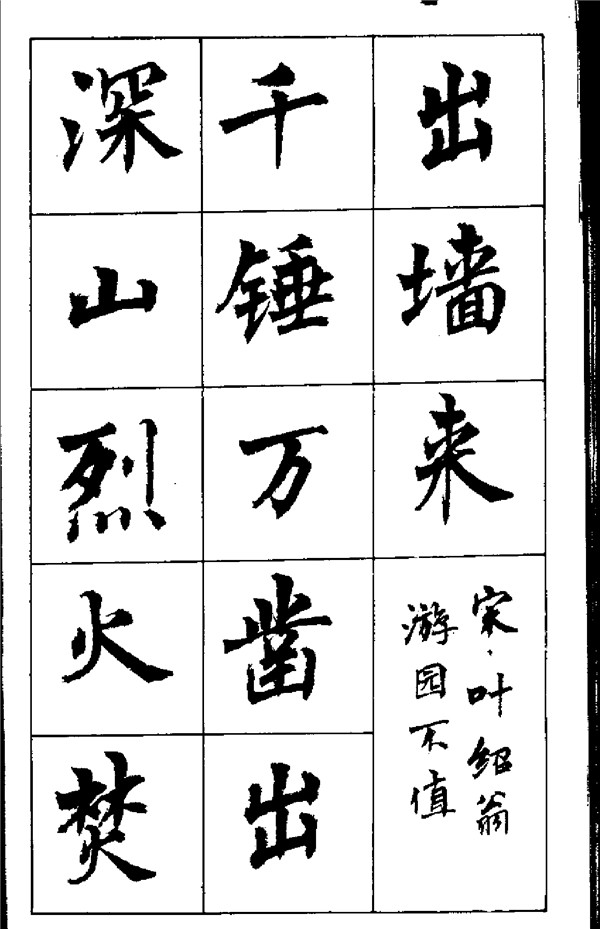 出墙来
宋·叶绍翁
游园不值
千锤万凿出
深山烈火焚